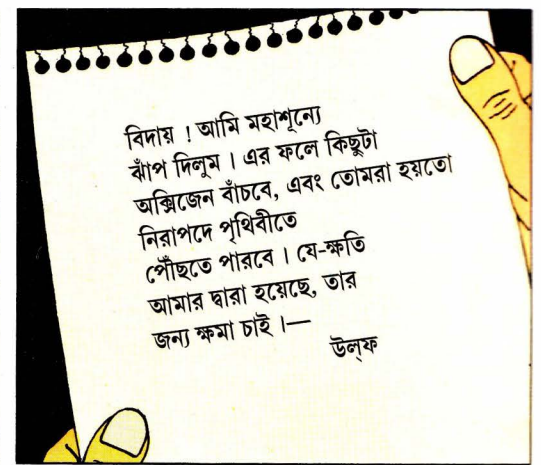 বিদায় ! আমি মহাশূন্যে
ঝাঁপ দিলুম । এর ফলে কিছুটা
অক্সিজেন বাঁচবে, এবং তোমরা হয়তো
নিরাপদে পৃথিবীতে
পৌঁছতে পারবে । যে-ক্ষতি
আমার দ্বারা হয়েছে, তার
জন্য ক্ষমা চাই ।—
উল্‌ফ